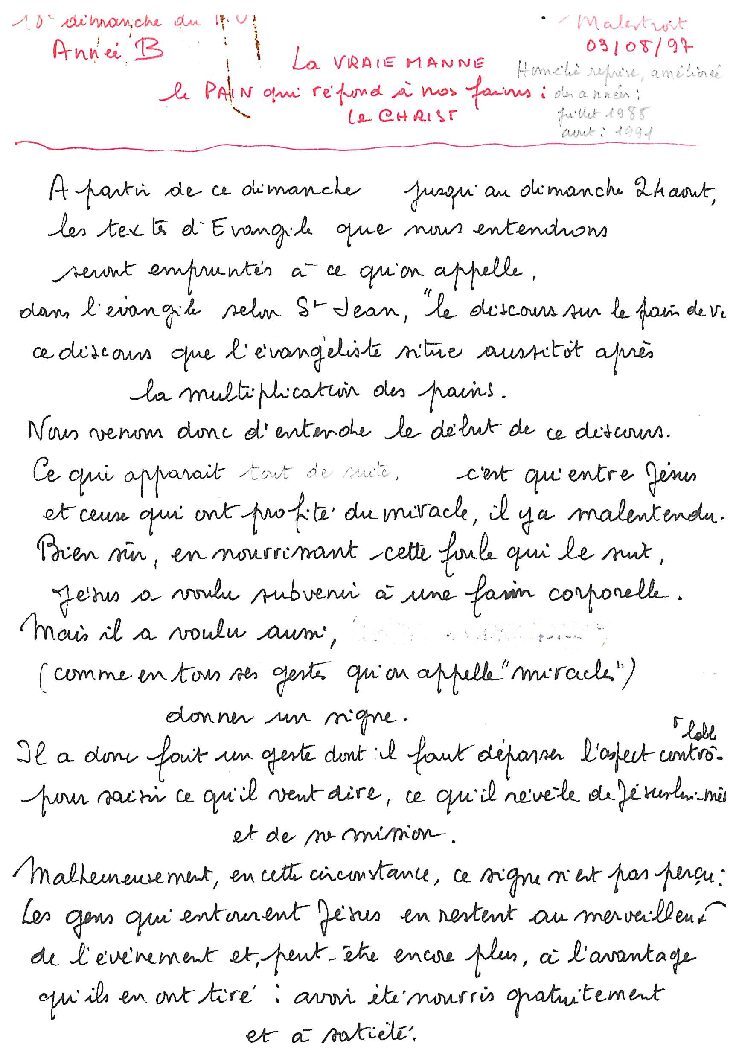 18e dimanche du T.O
Année B
Malestroit
03/08/97
La VRAIE MANNE
le PAIN qui répond à nos faims :
Le CHRIST
Homélie reprise, améliorée
des années :
juillet 1988
août : 1991
A partir de ce dimanche jusqu'au dimanche 24 aout,
les textes d'Evangile que nous entendrons
seront empruntés à ce qu'on appelle,
dans l'évangile selon St Jean, "le discours sur le pain de vi
ce discours que l'évangéliste situe aussitôt après
la multiplication des pains.
Nous venons donc d'entendre le début de ce discours.
Ce qui apparait tout de suite, c'est qu'entre Jésus
et ceux qui ont profité du miracle, il y a malentendu.
Bien sûr, en nourrissant cette foule qui le suit,
Jésus a voulu subvenir à une faim corporelle.
Mais il a voulu aussi,
(comme en tous ses gestes qu'on appelle "miracles")
donner un signe.
Il a donc fait un geste dont il faut dépasser l'aspect contrô-
lable
pour saisir ce qu'il veut dire, ce qu'il révèle de Jésus lui-mê
et de sa mission.
Malheureusement, en cette circonstance, ce signe n'est pas perçu :
Les gens qui entourent Jésus en restent au merveilleux
de l'événement et, peut-être encore plus, à l'avantage
qu'ils en ont tiré : avoir été nourris gratuitement
et à satiété.